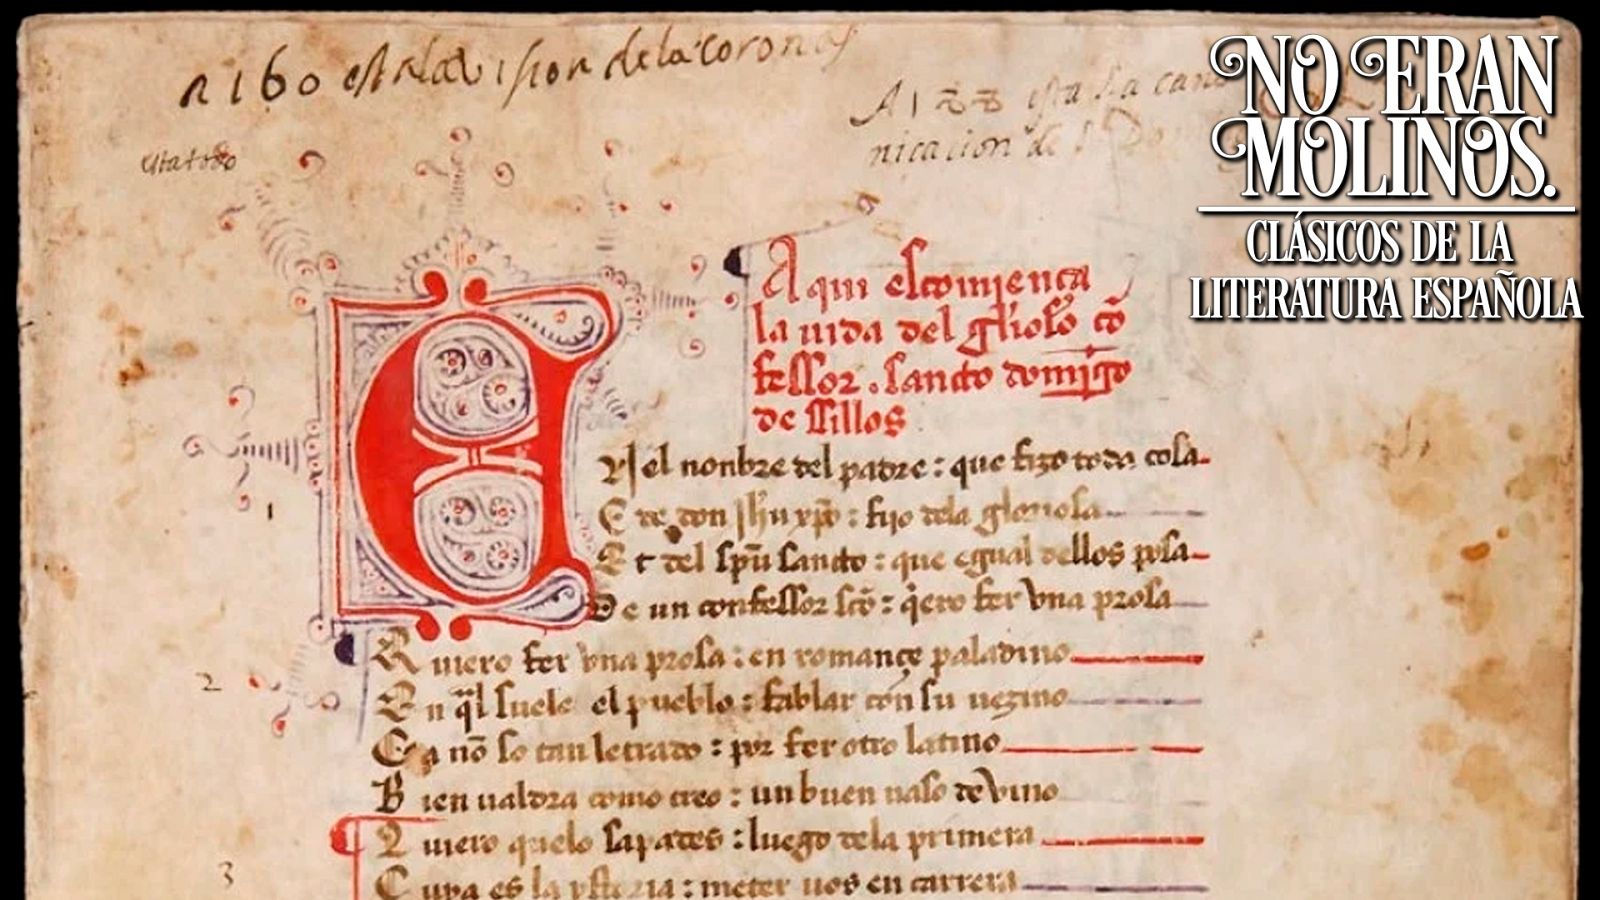 A 160 esta la vision de las coronas
A 1 esta la
nicacion de S. Do
esta todo
NO ERAN
MOLINOS.
CLÁSICOS DE LA
LITERATURA ESPAÑOLA
Aqui escomiença
la uida del glioso cō
fessor . sancto domīgo
de sillos
EN el nonbre del padre : que fizo toda cosa
1
E de don Jhū xp̄o : fijo dela gloriosa
Et del sp̄u sancto : que egual dellos posa
De un confessor scō : q̄ero fer vna prosa
Quiero fer vna prosa : en romançe paladino
2
En q̄l suele el pueblo : fablar con su uezino
Ca nō so tan letrado : por fer otro latino
Bien ualdra como creo : un buen uaso de vino
Quiero quelo sapades : luego dela primera
3
Cuya es la ystoria : meter uos en carrera